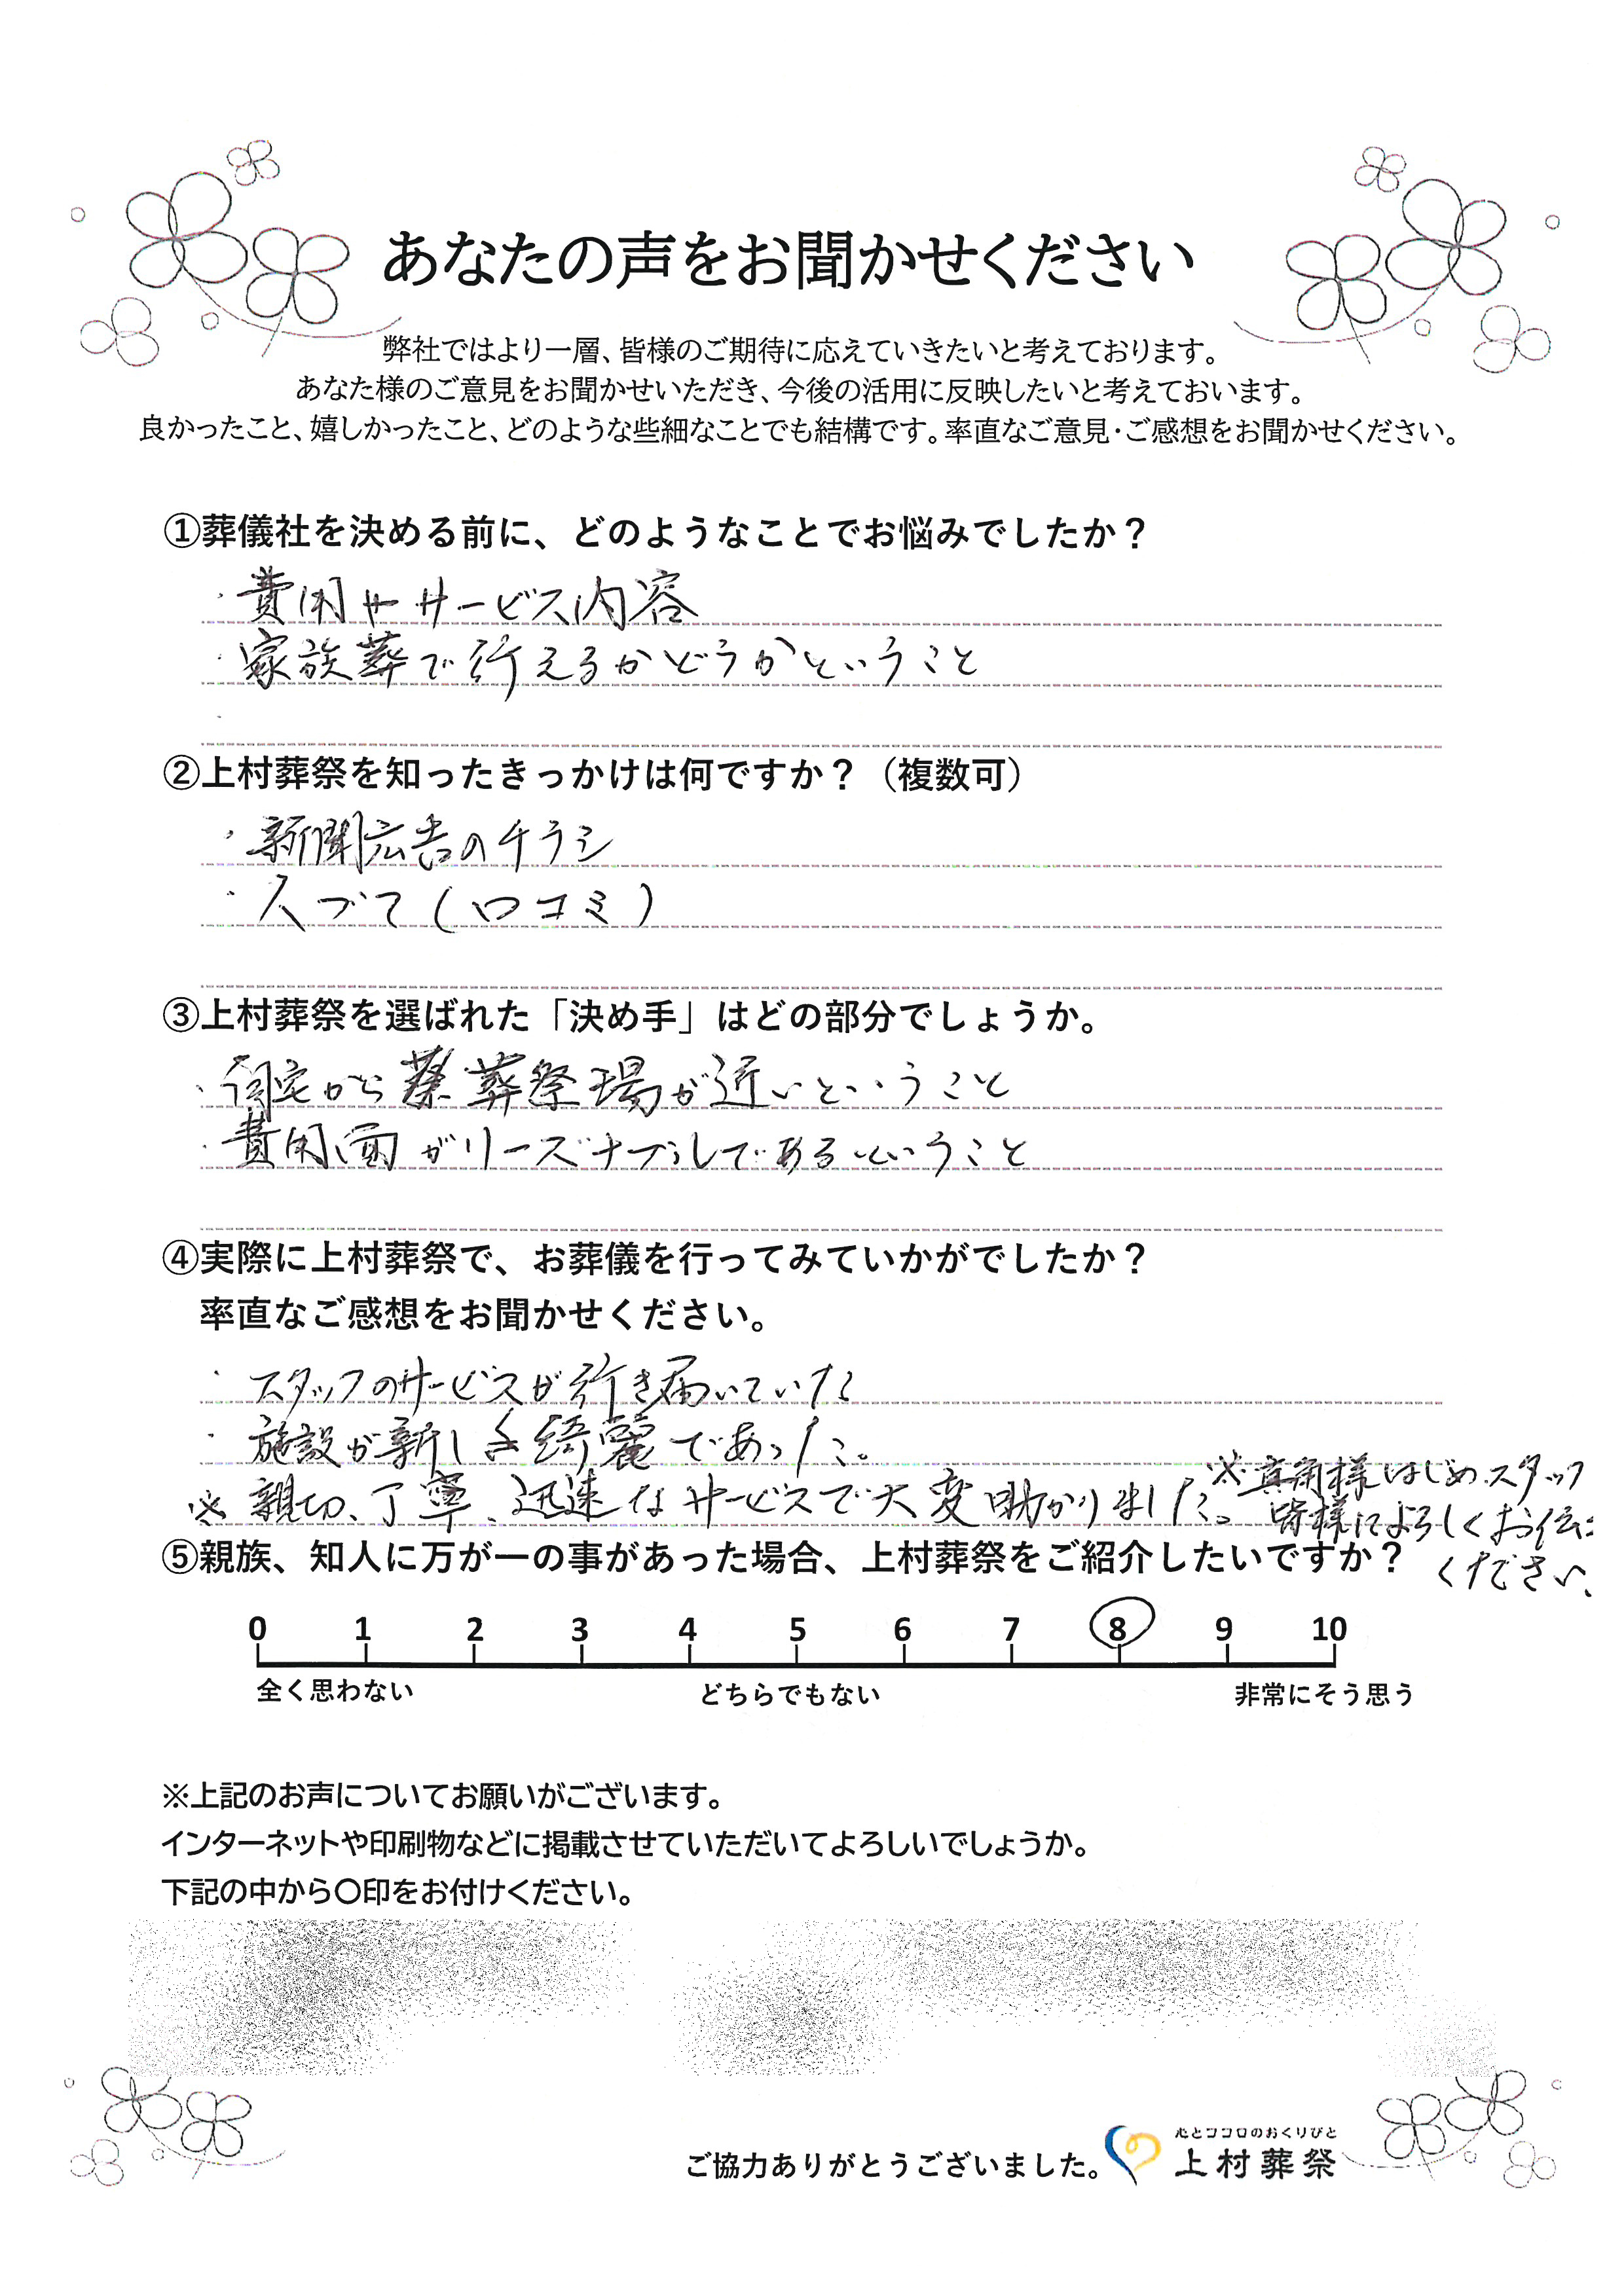 あなたの声をお聞かせください
弊社ではより一層、皆様のご期待に応えていきたいと考えております。
あなた様のご意見をお聞かせいただき、今後の活用に反映したいと考えておいます。
良かったこと、嬉しかったこと、どのような些細なことでも結構です。率直なご意見・ご感想をお聞かせください。
①葬儀社を決める前に、どのようなことでお悩みでしたか？
・費用やサービス内容
・家族葬で行えるかどうかということ
・
②上村葬祭を知ったきっかけは何ですか？（複数可）
・新聞広告のチラシ
・人づて(口コミ)
③上村葬祭を選ばれた「決め手」はどの部分でしょうか。
・自宅から葬祭場が近いということ
・費用面がリーズナブルであるということ
④実際に上村葬祭で、お葬儀を行ってみていかがでしたか？
率直なご感想をお聞かせください。
・スタッフのサービスが行き届いていた
・施設が新しく綺麗であった。
※親切、丁寧、迅速なサービスで大変助かりました。
※真角様はじめスタッフ
皆様によろしくお伝え
ください、
⑤親族、知人に万が一の事があった場合、上村葬祭をご紹介したいですか？
0 1 2 3 4 5 6 7 8 9 10
全く思わない どちらでもない 非常にそう思う
※上記のお声についてお願いがございます。
インターネットや印刷物などに掲載させていただいてよろしいでしょうか。
下記の中から〇印をお付けください。
ご協力ありがとうございました。
心とココロのおくりびと
上村葬祭